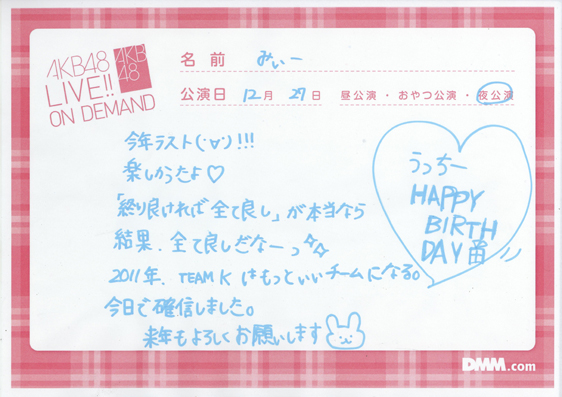 AKB48
LIVE!!
ON DEMAND
AKB
48
名前 みぃー
公演日 12月 29日 昼公演・おやつ公演・夜公演
今年ラスト(・∀・)!!!
楽しかったよ♡
「終り良ければ全て良し」が本当なら
結果、全て良しだなーっ☆☆
2011年、TEAM K はもっといいチームになる。
今日で確信しました。
来年もよろしくお願いします
うっちー
HAPPY
BIRTH
DAY
DMM.com